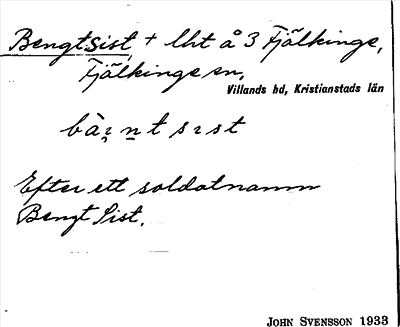 Bengtsist, + lht å 3 Fjälkinge,
Fjälkinge sn,
Villands hd, Kristianstads län
Efter ett soldatnamn
Bengt Sist.
JOHN SVENSSON 1933